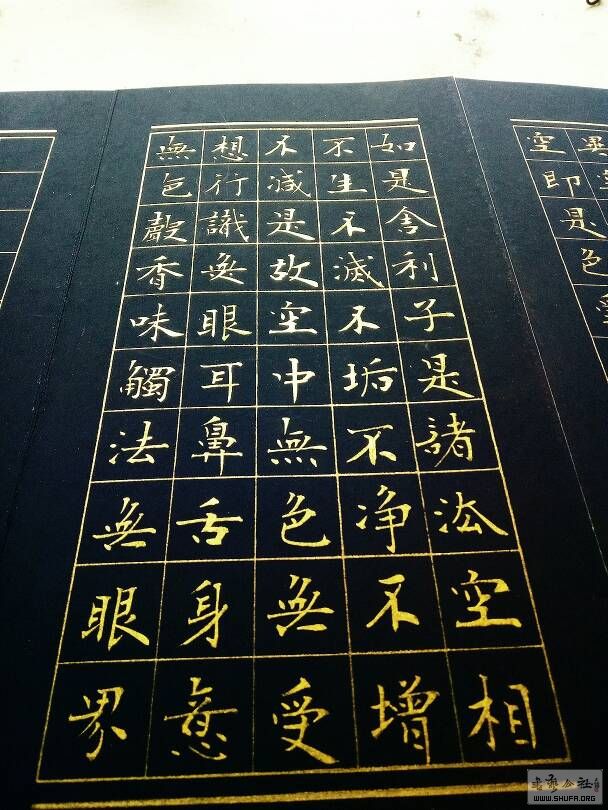 空即是色受
如是舍利子是諸法空相
不生不滅不垢不净不增
不減是故空中無色無受
想行識無眼耳鼻舌身意
無色聲香味觸法無眼界
WWW.SHUFA.ORG